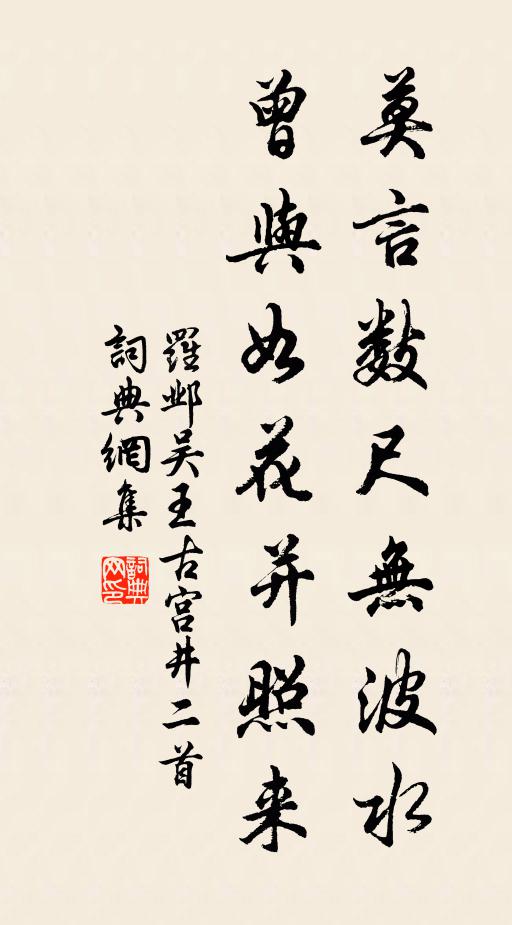 莫言數尺無波水
曾與如花并照来
羅邺吴王古宫井二首
詞典網集
詞典网印